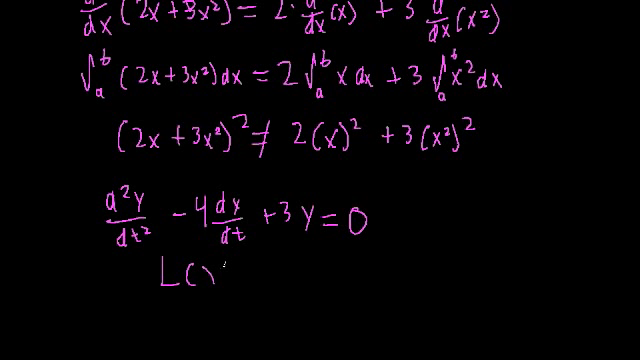 d/dx (2x+3x²) = 2· d/dx (x) + 3 d/dx (x²)
∫ₐᵇ (2x+3x²)dx = 2∫ₐᵇ x dx + 3∫ₐᵇ x² dx
(2x+3x²)² ≠ 2(x)² + 3(x²)²
d²y/dt² - 4 dy/dt + 3y = 0
L( )